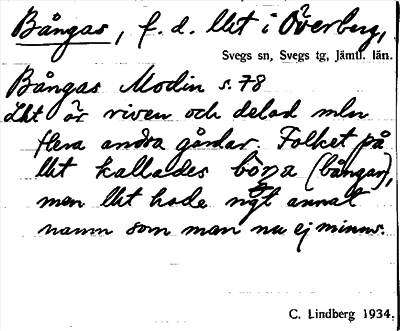 Bångas, f. d. lht i Överberg,
Svegs sn, Svegs tg, Jämtl. län.
Bångas Modin s. 78
Lht är riven och delad mln
flera andra gårdar. Folket på
lht kallades båŋa (bångar),
men lht hade ngt annat
namn som man nu ej minns.
C. Lindberg 1934.